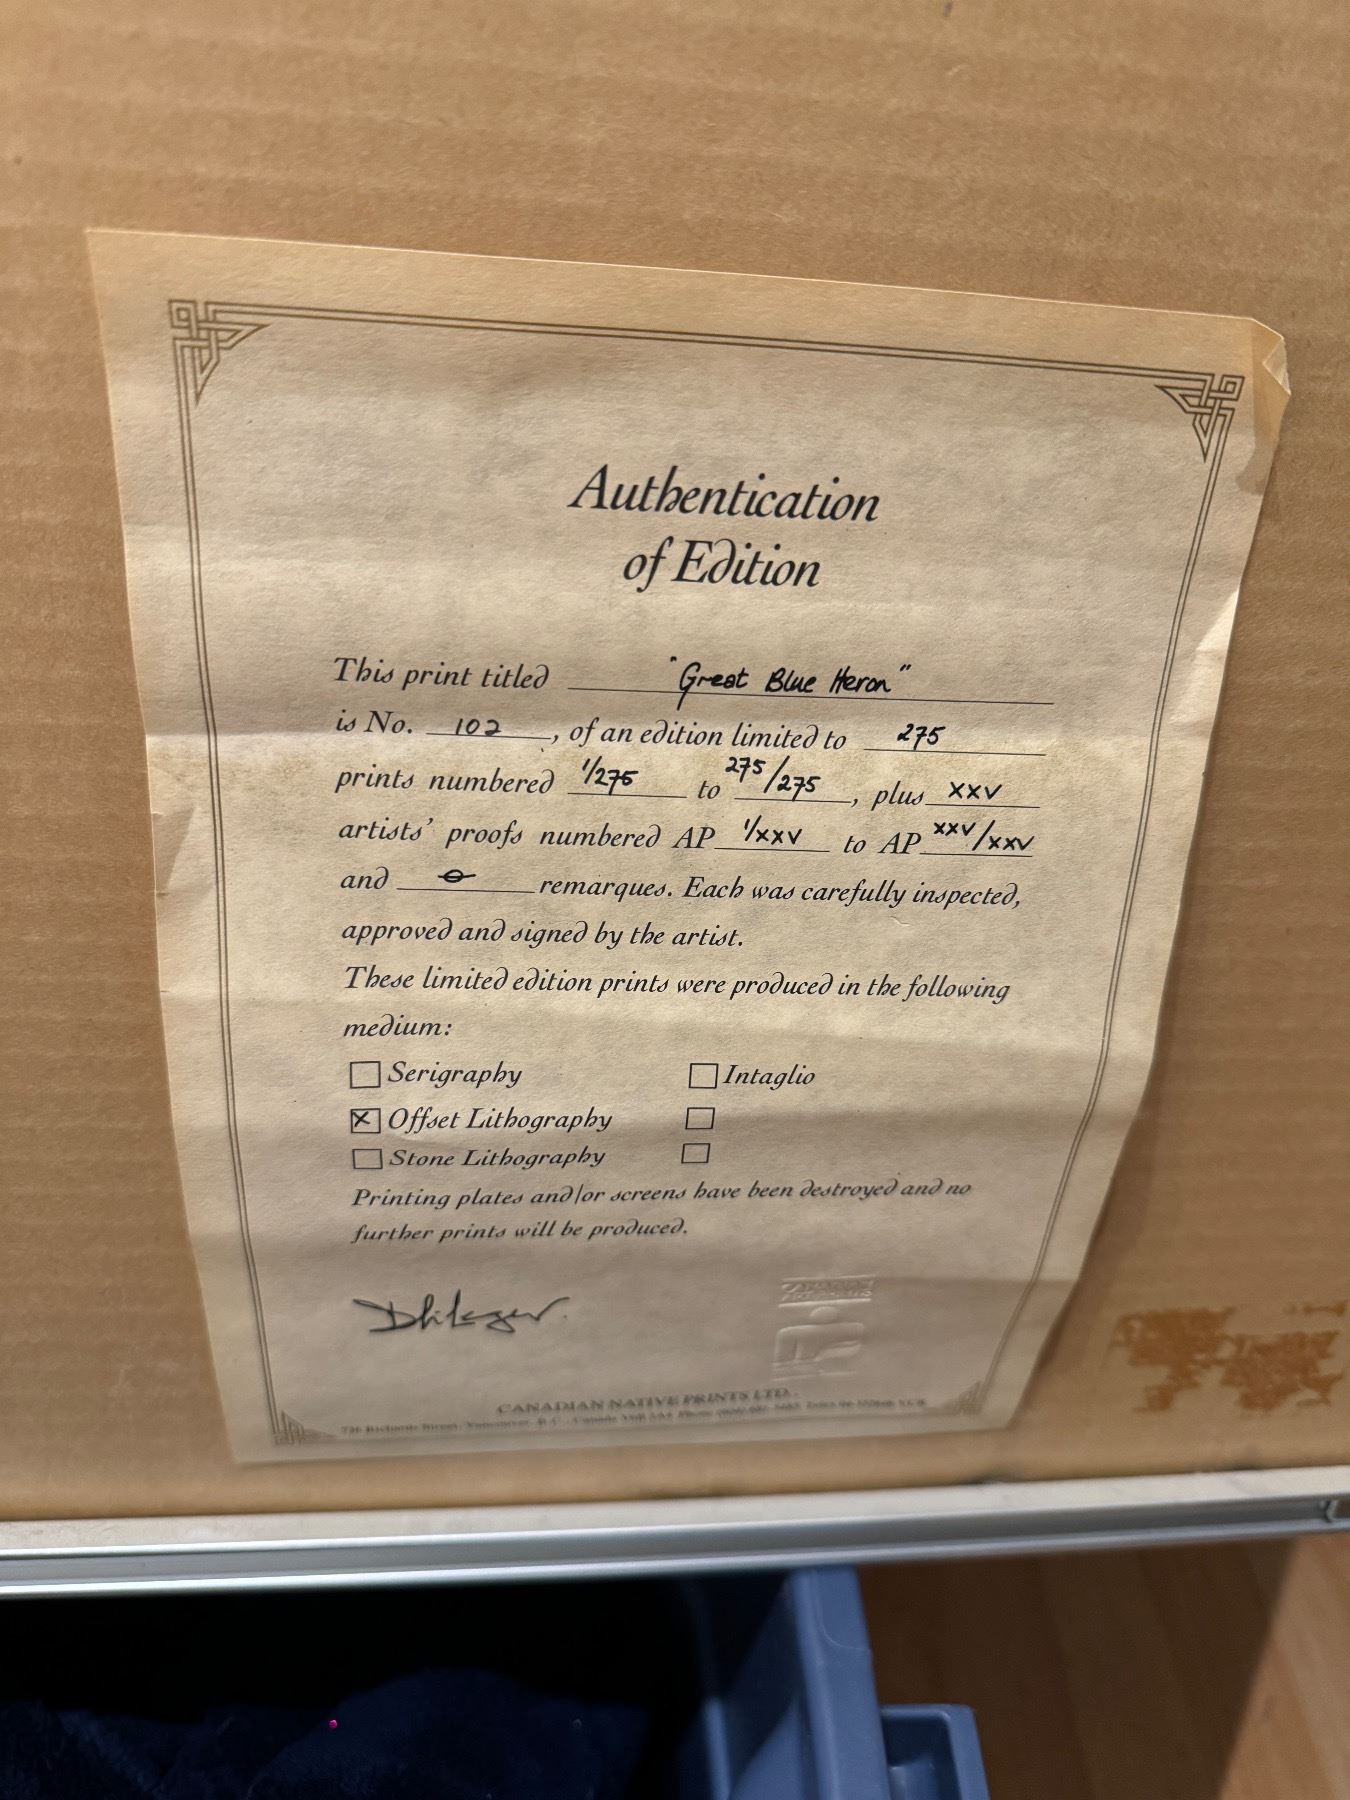 Authentication
of Edition
This print titled "Great Blue Heron"
is No. 102, of an edition limited to 275
prints numbered 1/275 to 275/275, plus XXV
artists' proofs numbered AP 1/XXV to AP XXV/XXV
and remarques. Each was carefully inspected,
approved and signed by the artist.
These limited edition prints were produced in the following
medium:
Serigraphy Intaglio
X Offset Lithography
Stone Lithography
Printing plates and/or screens have been destroyed and no
further prints will be produced.
CANADIAN NATIVE PRINTS LTD.
Richards Street, Vancouver, B.C., Canada